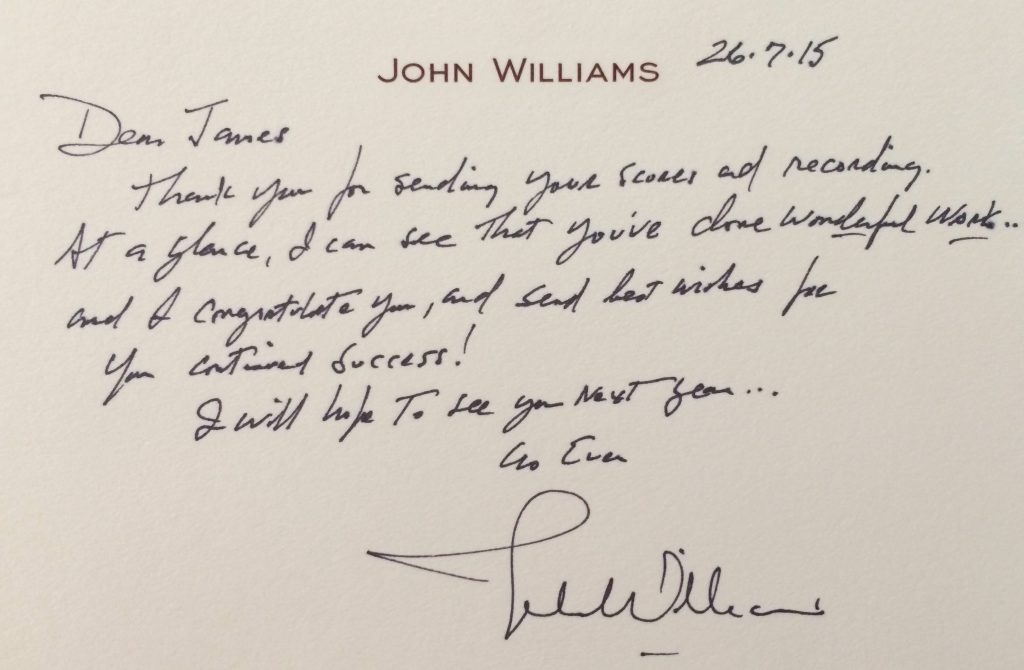 JOHN WILLIAMS 26.7.15
Dear James
Thank you for sending your scores and recording.
At a glance, I can see that you've done wonderful work..
and I congratulate you, and send best wishes for
your continued success!
I will hope to see you next year...
As Ever
John Williams